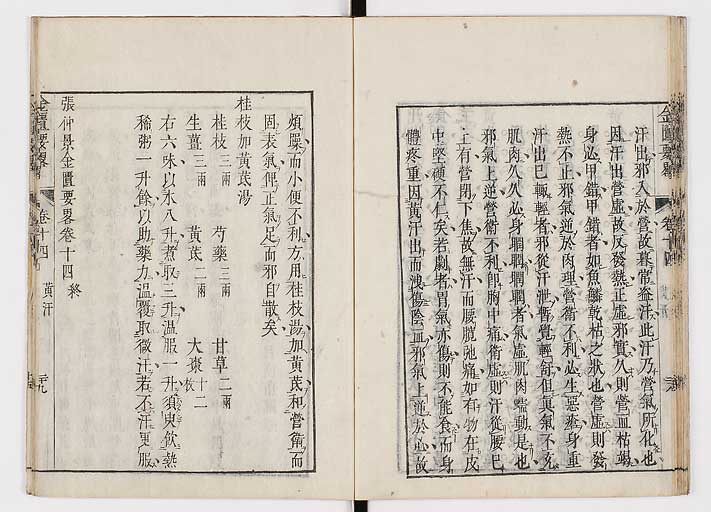 汗出邪入於營故暮常盜汗此汗乃營氣所化也
因汗出營虛故反發熱正虛邪實久則營血枯竭
身必甲錯甲錯者如魚鱗乾枯之狀也營虛則發
熱不止邪氣逆於肉理營衛不利必生惡瘡身重
汗出已輒輕者邪從汗泄暫覺輕快但真氣不充
肌肉久久必身瞤瞤瞤者氣虛肌肉蠕動是也
邪氣上逆營衛不利即胸中痛衛虛則汗從腰已
上有營閉下焦故無汗而腰髖弛痛如有物在皮
中堅硬不仁矣若劇者胃氣亦傷則不能食而身
體疼重因黃汗出而洩傷陰血邪氣上逆於心故
煩躁而小便不利方用桂枝湯加黃芪和營衛而
固表氣俾正氣足而邪自散矣
桂枝加黃芪湯
桂枝三兩 芍藥三兩 甘草二兩
生薑三兩 黃芪二兩 大棗十二枚
右六味以水八升煮取三升溫服一升須臾飲熱
稀粥一升餘以助藥力溫覆取微汗若不汗更服
張仲景金匱要畧卷十四終
金匱要畧 卷十四 黃汗 廿九
金匱要畧 卷十四